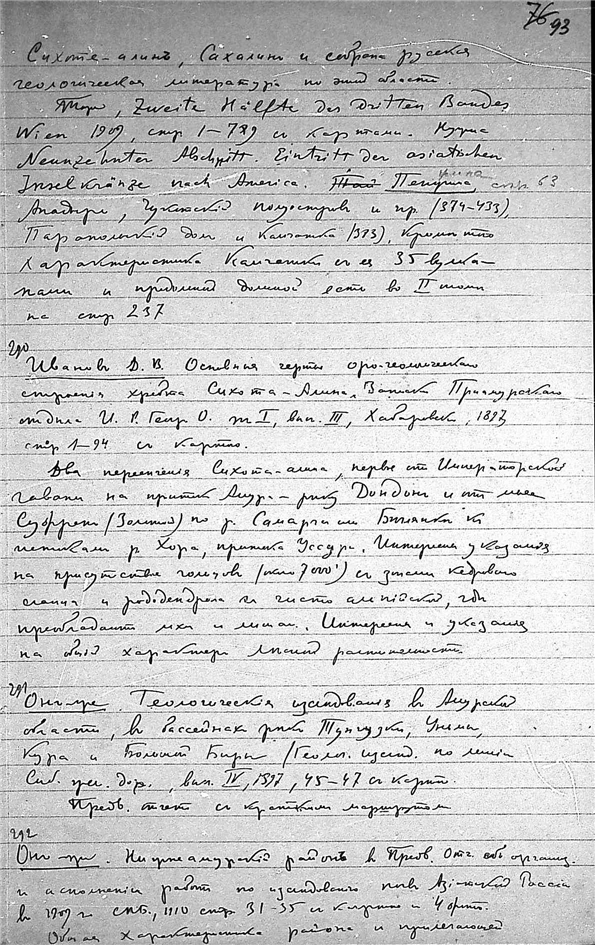 76 93
Сихоте-алинъ, Сахалинъ и собрана русская
геологическая литература по этой области.
Тоже, Zweite Hälfte des dritten Bandes
Wien 1909, стр 1–789 съ картами.
Neunzehnter Abschnitt. Eintritt der asiatischen
Inselkränze nach America. Пенжина, стр. 63
Анадырь, Чукотскій полуостровъ и пр. (374–433),
Парапольскій долъ и Камчатка (393), кромѣ
характеристика Камчатки съ ея 35 вулка-
нами и продольной долиной есть во II томѣ
на стр 237
290
Ивановъ Д. В. Основныя черты оро-геологическаго
строенія хребта Сихота-Алиня, Записки Приамурскаго
отдѣла И. Р. Геогр О. т I, вып. III, Хабаровскъ, 1897
стр 1–94 съ картою.
Два пересѣченія Сихота-алиня, первое от Императорской
гавани на притокъ Амура – рѣку Дондонъ и от мыса
Суффрена (Золотой) по р. Самарга или къ
р. Хора, притока Уссури. Интересны указанія
на присутствіе гольцовъ (около 7000') съ кедроваго
сланца и рододендрона и чисто альпійской, гдѣ
преобладаютъ мхи и лишаи. Интересны и указанія
на общій характеръ лѣсной растительности.
291
Онъ-же. Геологическія изслѣдованія въ Амурской
области, въ бассейнахъ рѣкъ Тунгузки, Урми,
Кура и Большой Биры (Геолог. изслѣд. по линіи
Сиб. жел. дор., вып. IV, 1897, 45–47 съ карт.
Предв. отчет съ краткимъ маршрутомъ
292
Онъ-же. Нижнеамурскій районъ въ Предв. Отч. объ организ.
и исполненіи работъ по изслѣдованію почвъ Азіатской Россіи
въ 1909 г. СПБ., 1910 стр 31–35 съ картою и 4 фот.
Общая характеристика района и прилегающей